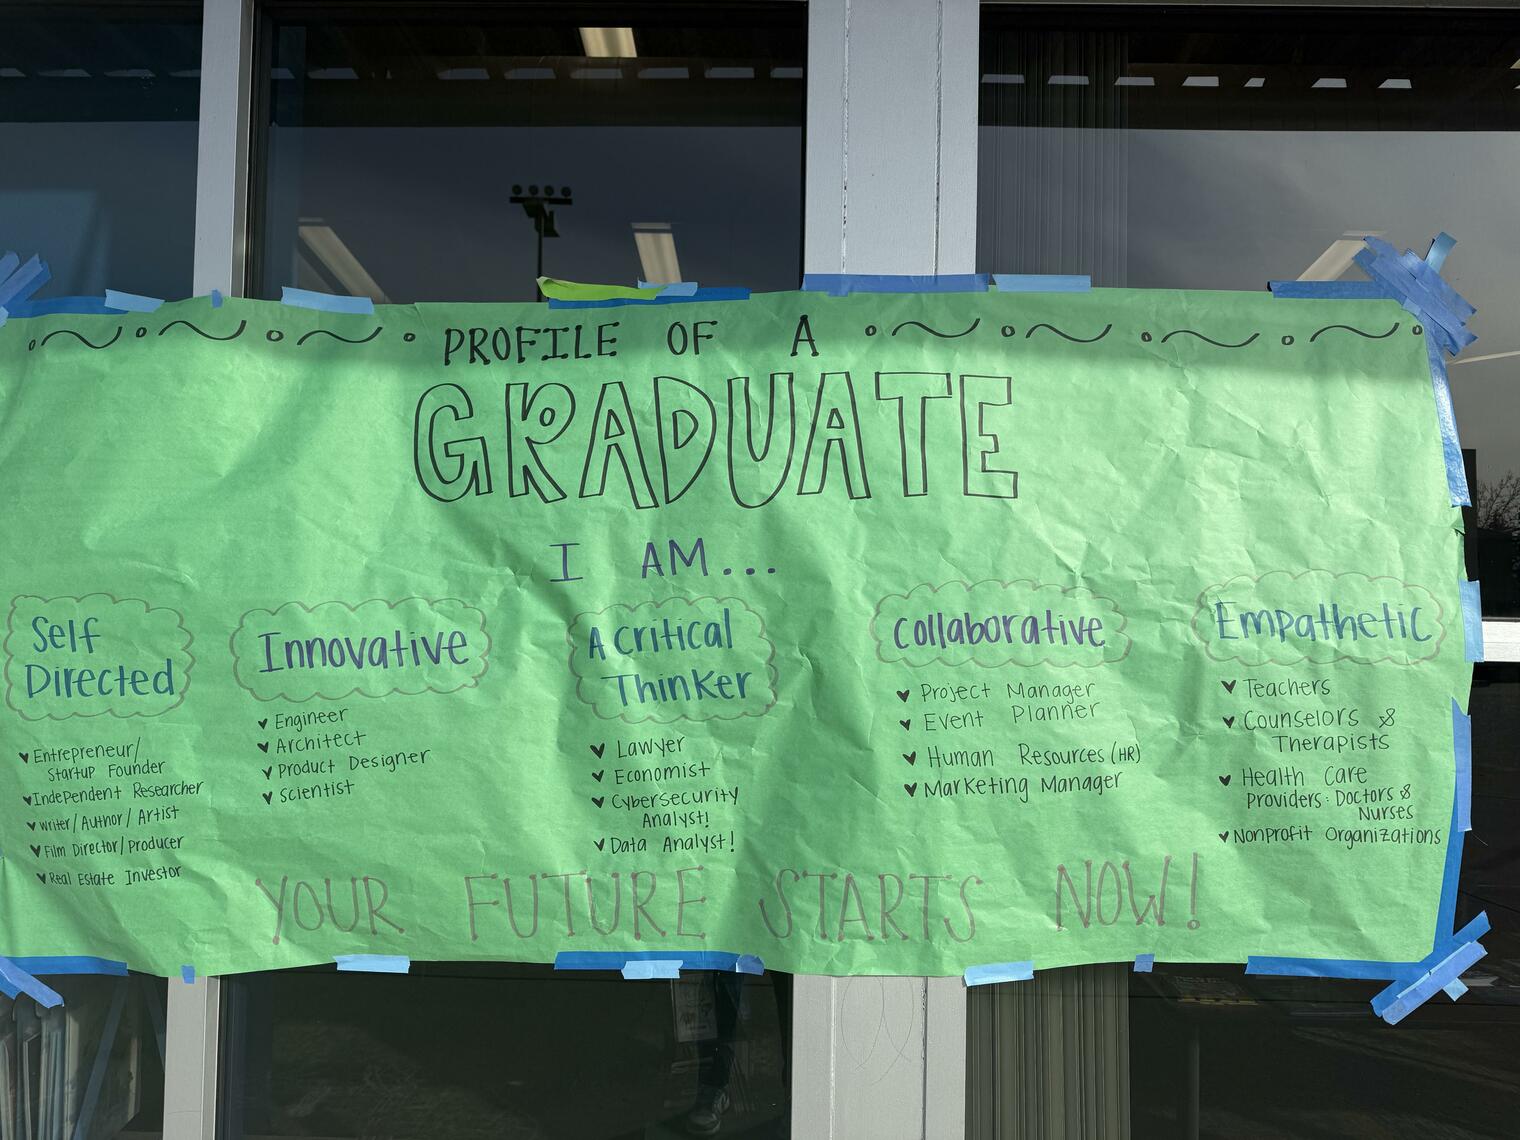 PROFILE OF A
GRADUATE
I AM...
Self
Directed
♥ Entrepreneur/
Startup Founder
♥ Independent Researcher
♥ Writer/Author/Artist
♥ Film Director/Producer
♥ Real Estate Investor
Innovative
♥ Engineer
♥ Architect
♥ Product Designer
♥ Scientist
A Critical
Thinker
♥ Lawyer
♥ Economist
♥ Cybersecurity
Analyst!
♥ Data Analyst!
Collaborative
♥ Project Manager
♥ Event Planner
♥ Human Resources (HR)
♥ Marketing Manager
Empathetic
♥ Teachers
♥ Counselors &
Therapists
♥ Health Care
Providers: Doctors &
Nurses
♥ Nonprofit Organizations
YOUR FUTURE STARTS NOW!